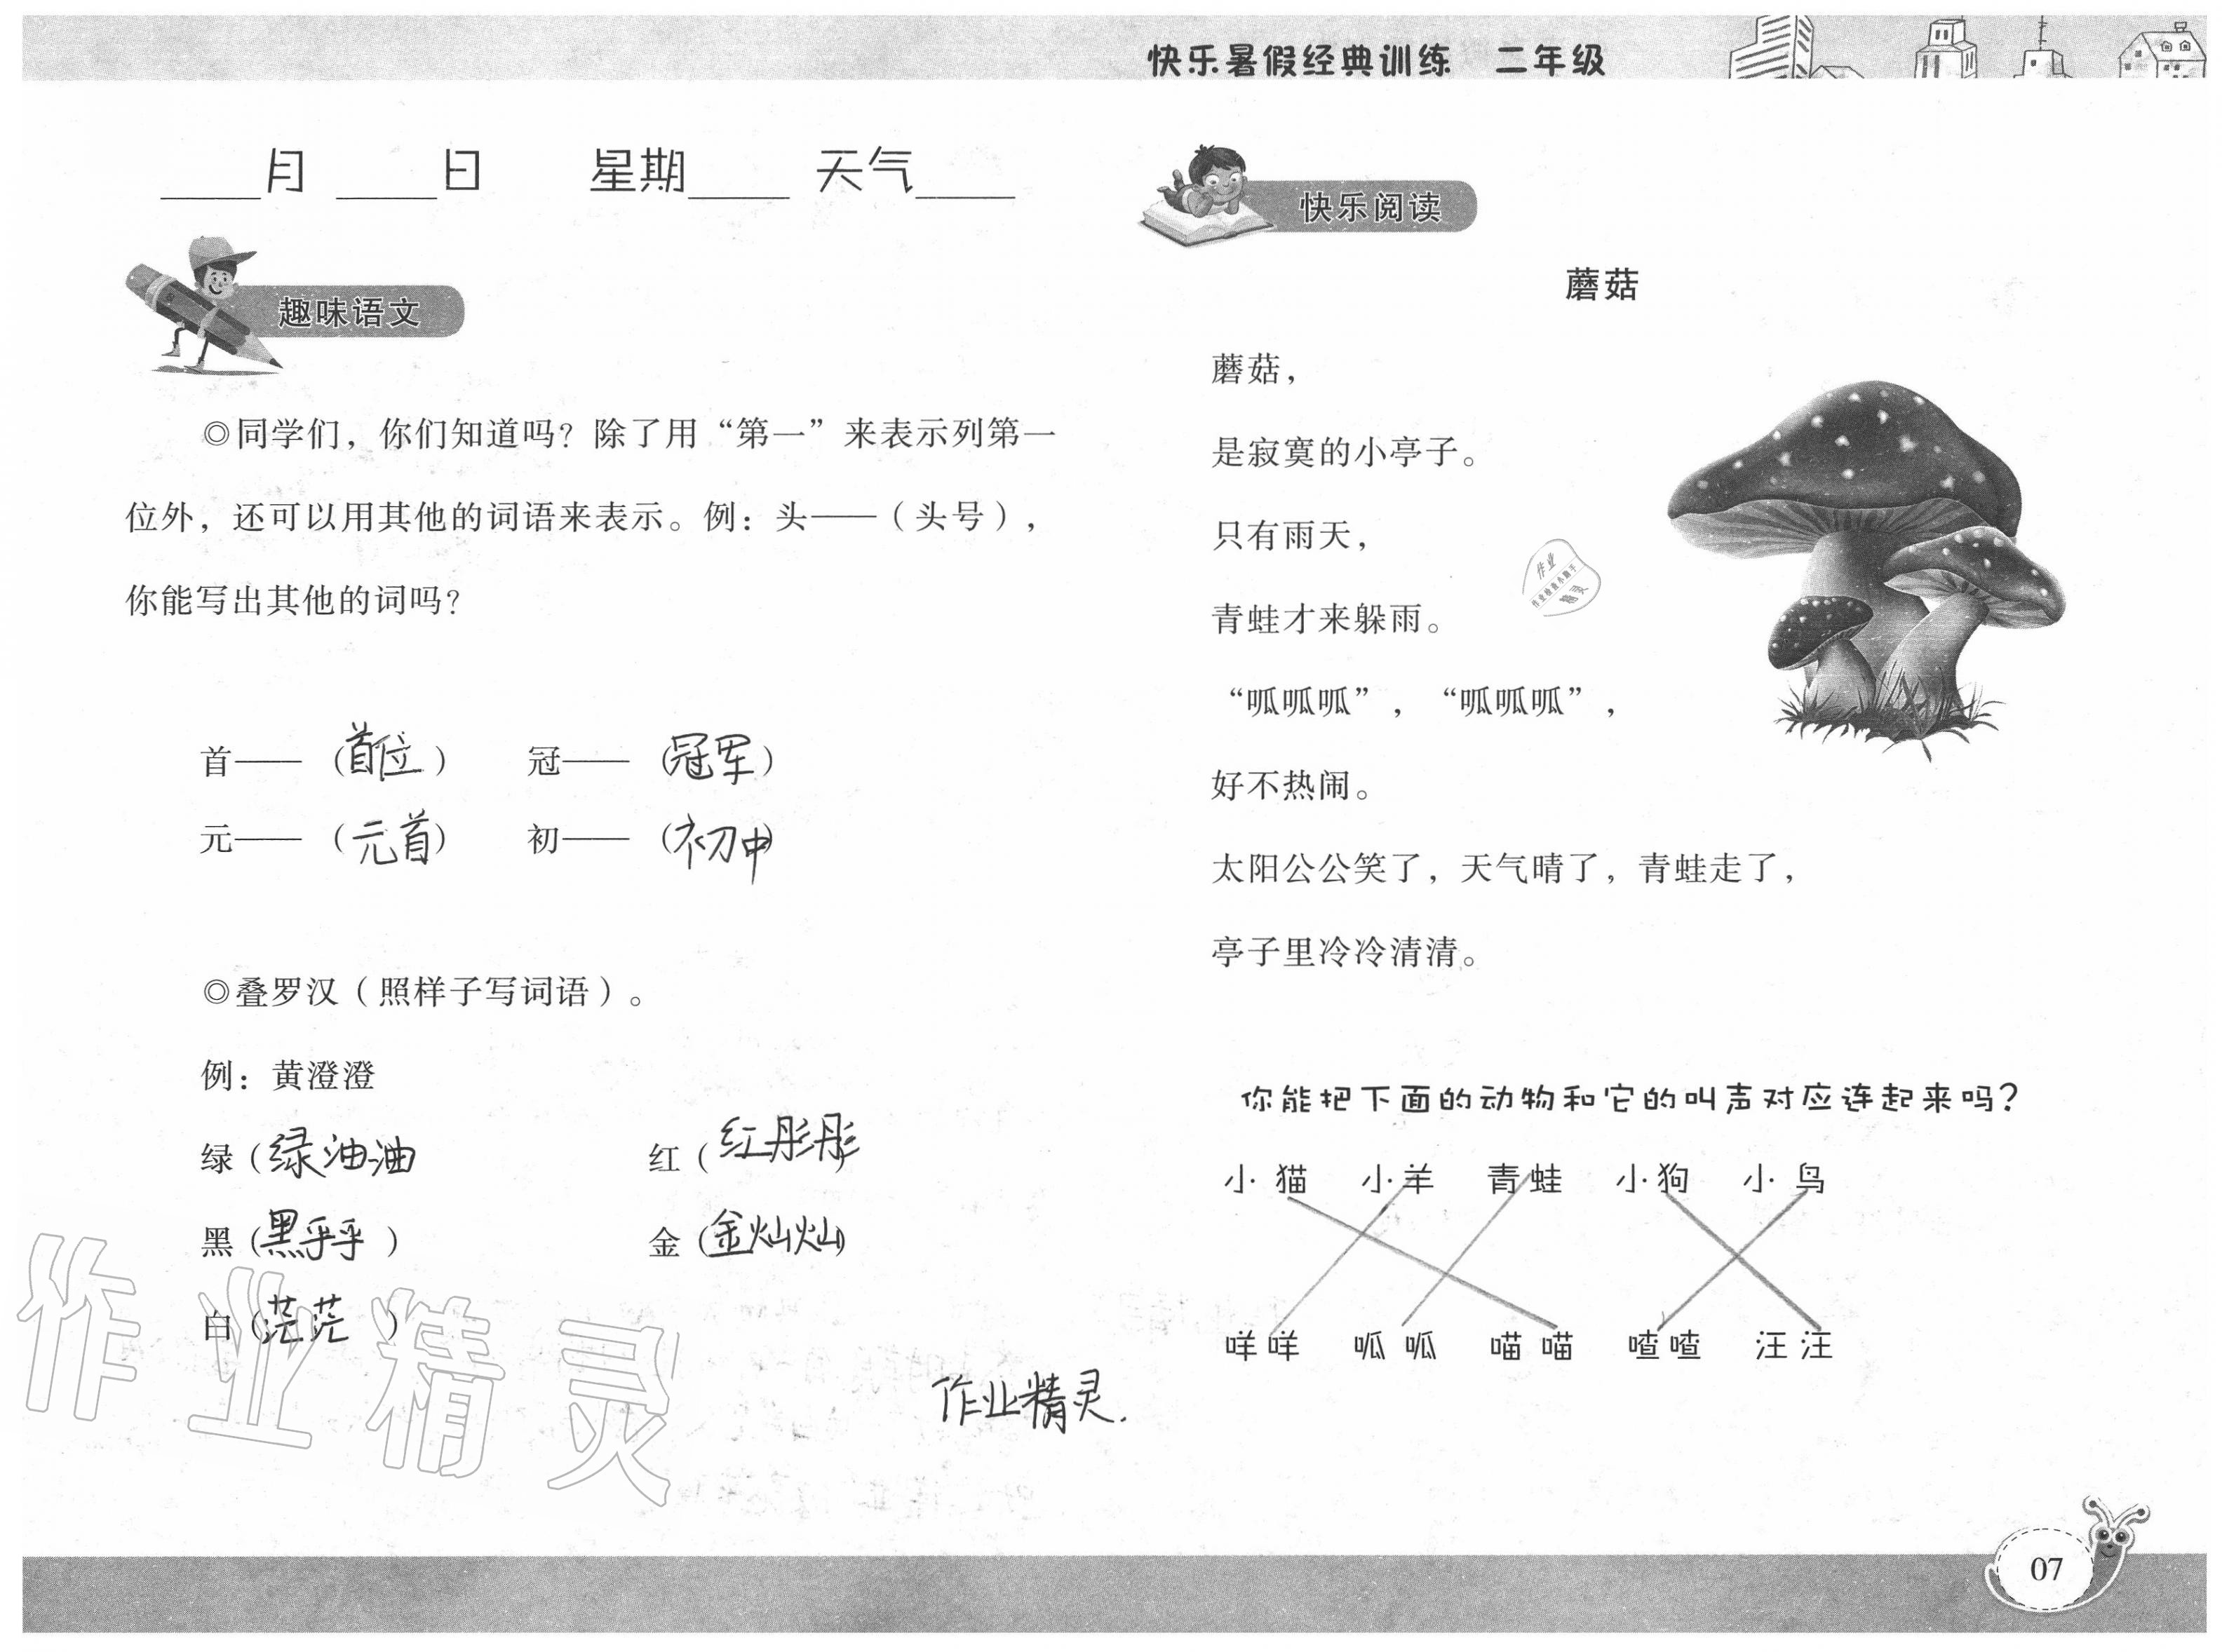 快乐暑假经典训练 二年级
____月 ____日 星期____ 天气____
趣味语文
◎同学们，你们知道吗？除了用“第一”来表示列第一
位外，还可以用其他的词语来表示。例：头——（头号），
你能写出其他的词吗？
首——（首位） 冠——（冠军）
元——（元首） 初——（初中）
◎叠罗汉（照样子写词语）。
例：黄澄澄
绿（绿油油 红（红彤彤）
黑（黑乎乎） 金（金灿灿）
白（茫茫）
作业精灵.
作业精灵
快乐阅读
蘑菇
蘑菇，
是寂寞的小亭子。
只有雨天，
青蛙才来躲雨。
“呱呱呱”，“呱呱呱”，
好不热闹。
太阳公公笑了，天气晴了，青蛙走了，
亭子里冷冷清清。
作业
作业检查小助手
精灵
你能把下面的动物和它的叫声对应连起来吗？
小猫 小羊 青蛙 小狗 小鸟
咩咩 呱呱 喵喵 喳喳 汪汪
07